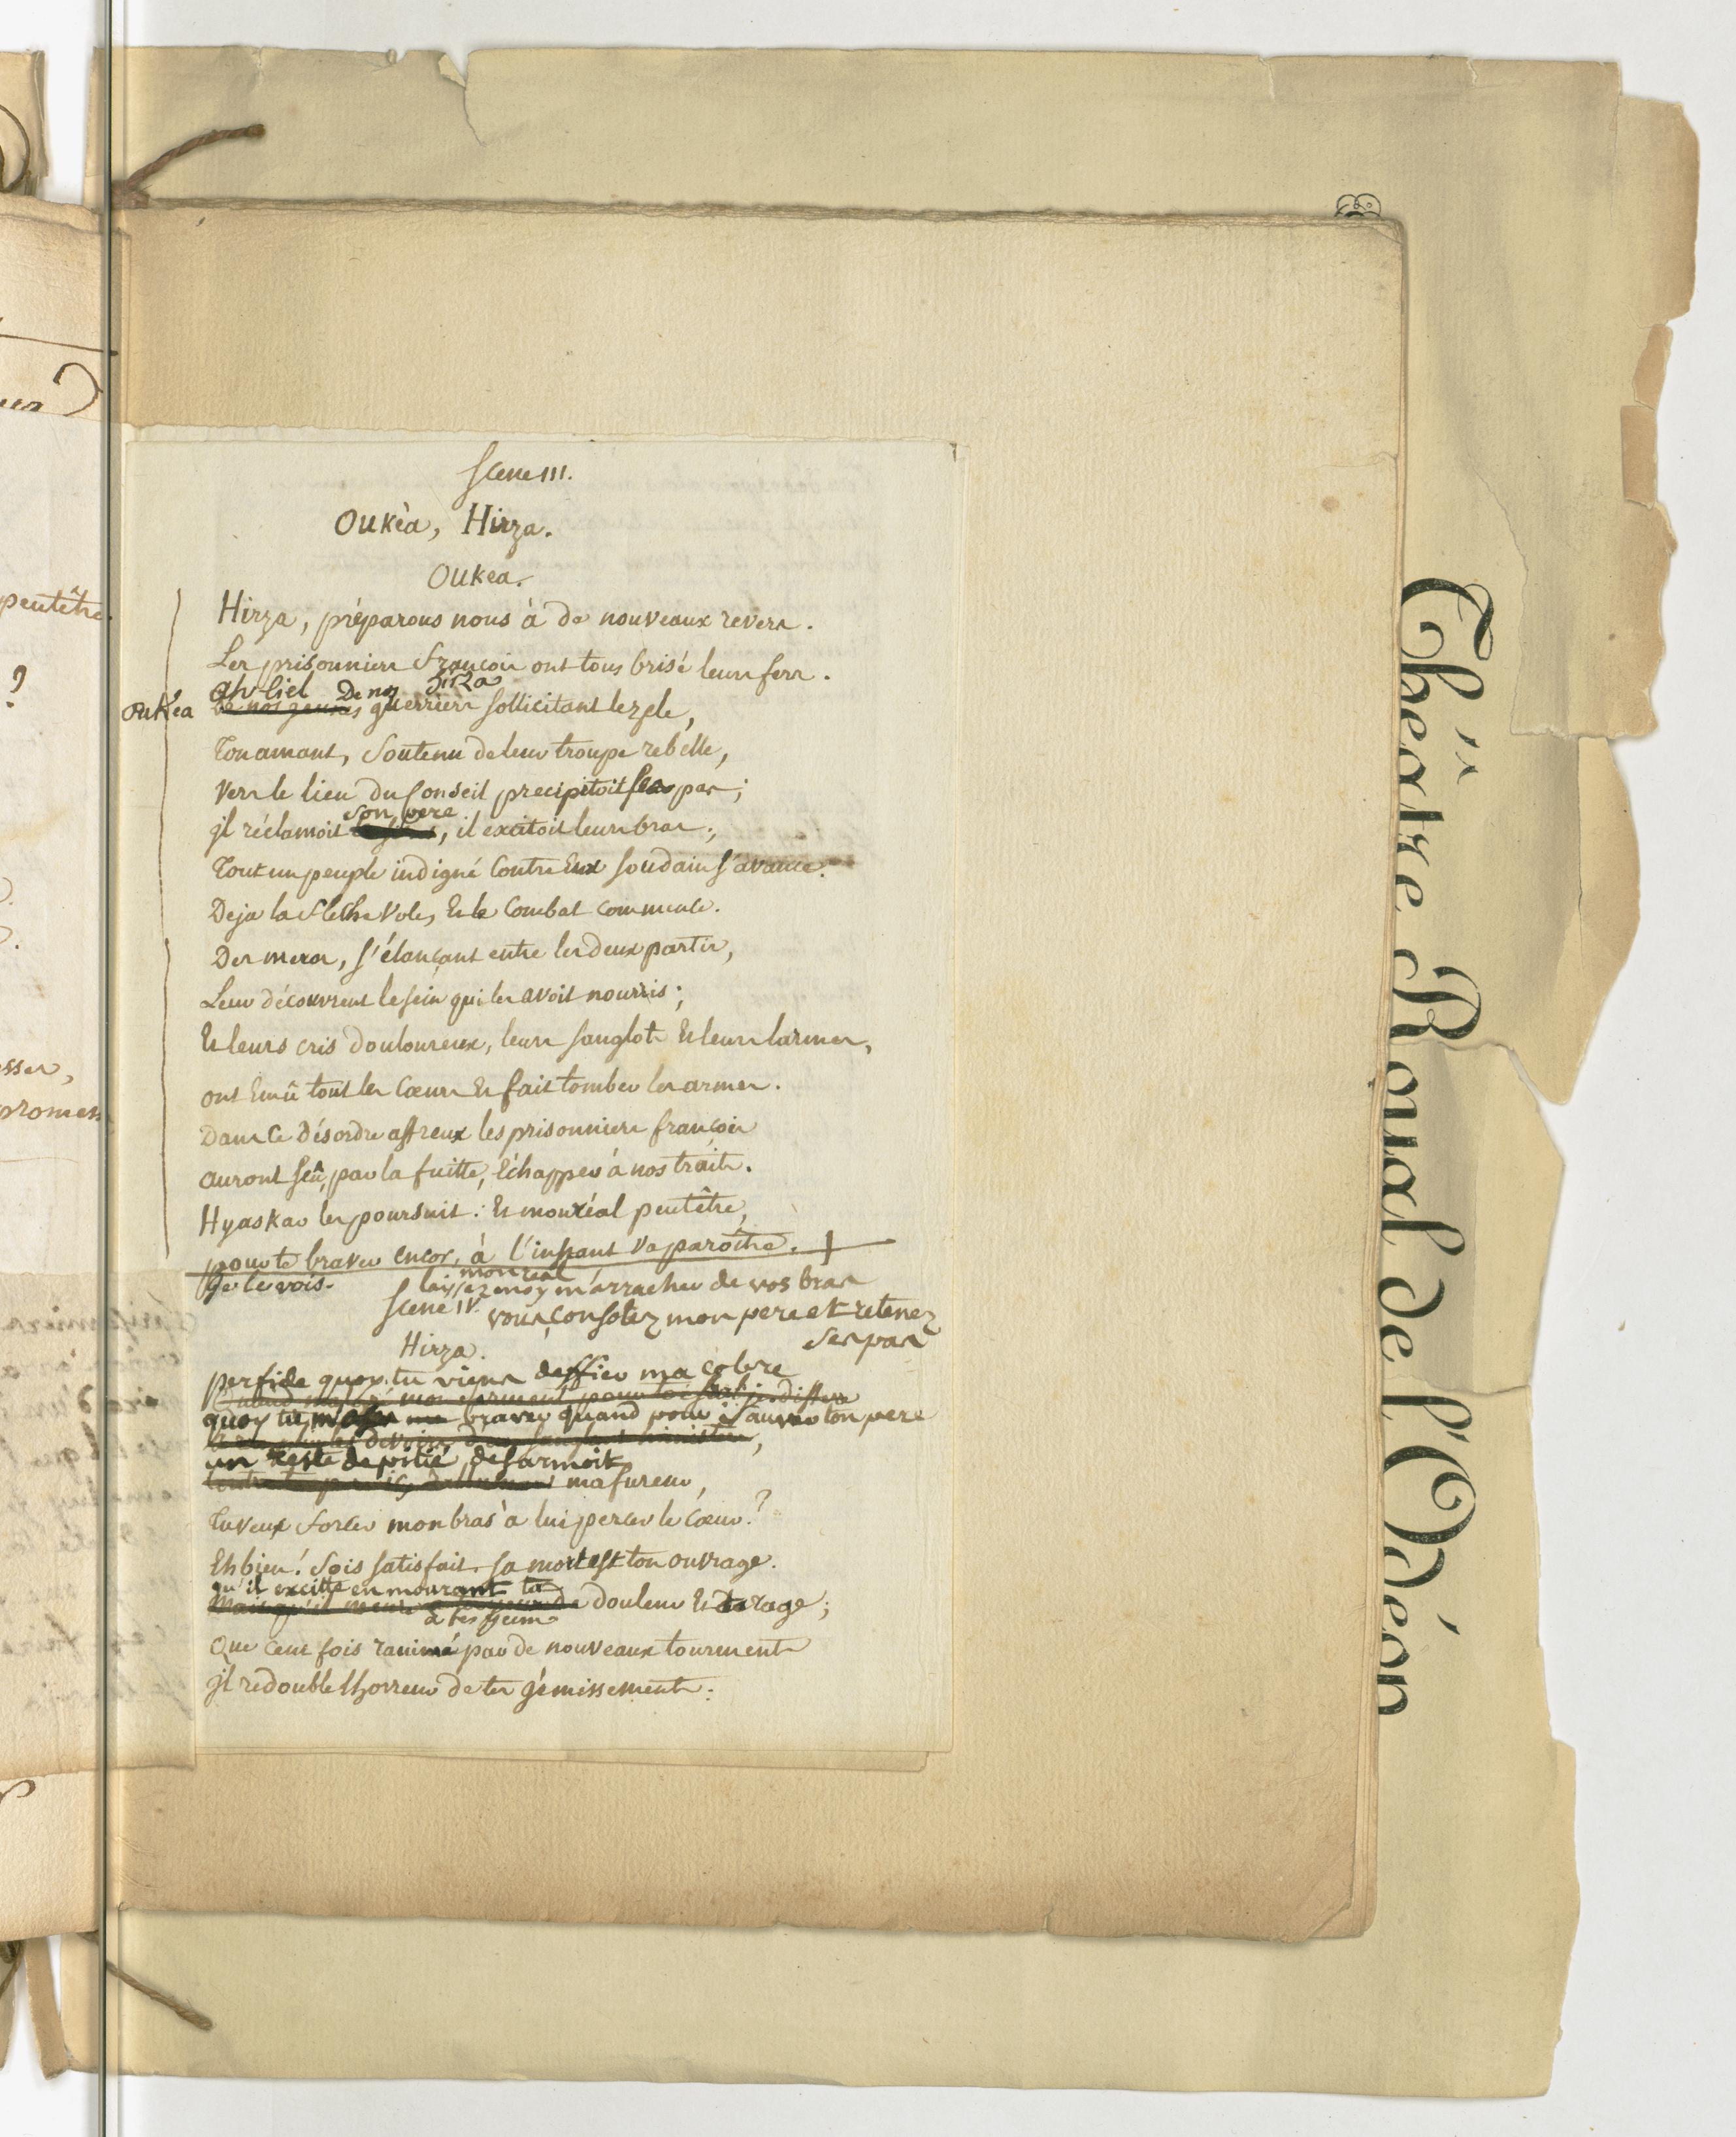 Scene III.
Oukèa, Hirza.
Oukea.
Hirza, préparons nous à de nouveaux revers.
Les prisonniers françois ont tous brisé leurs fers.
ah Ciel hirza
Oukéa De nos guerriers sollicitant le zele,
Ton amant, soutenu de leur troupe rebelle,
Vers le lieu du Conseil precipitoit ses pas;
il réclamoit son pere, il excitoit leurs bras;
Tout un peuple indigné contre Eux soudain s'avance.
Deja la fleche vole, Et le Combat commence.
Des meres, s'élançant entre les deux partis,
Leur découvrent le sein qui les avoit nourris;
Et leurs cris douloureux, leurs sanglots Et leurs larmes,
ont Emû tous les Cœurs Et fait tomber les armes.
Dans ce désordre affreux les prisonniers françois
auront sçû, par la fuitte, Echapper à nos traits.
Hyaskar les poursuit: Et monréal peutêtre,
pour te braver encor, à l'instant va paroitre.
je le vois.
monréal
laissez moy m'arracher de vos bras
Scene IV. vous, consolez mon pere et retenez
ses pas
Hirza.
perfide quoy tu viens deffier ma colere
quoy tu braver quand pour sauver ton pere
un reste de pitié desarmoit
ma fureur,
Tu veux forcer mon bras à lui percer le Cœur?
Eh bien! sois satisfait. sa mort est ton ouvrage.
qu'il excitte en mourant ta douleur Et ta rage;
à tes yeux
Que cent fois ranimé par de nouveaux tourments
il redouble l'horreur de tes gémissements.
peutêtre
?
promess
Théâtre Royal de l'Odéon